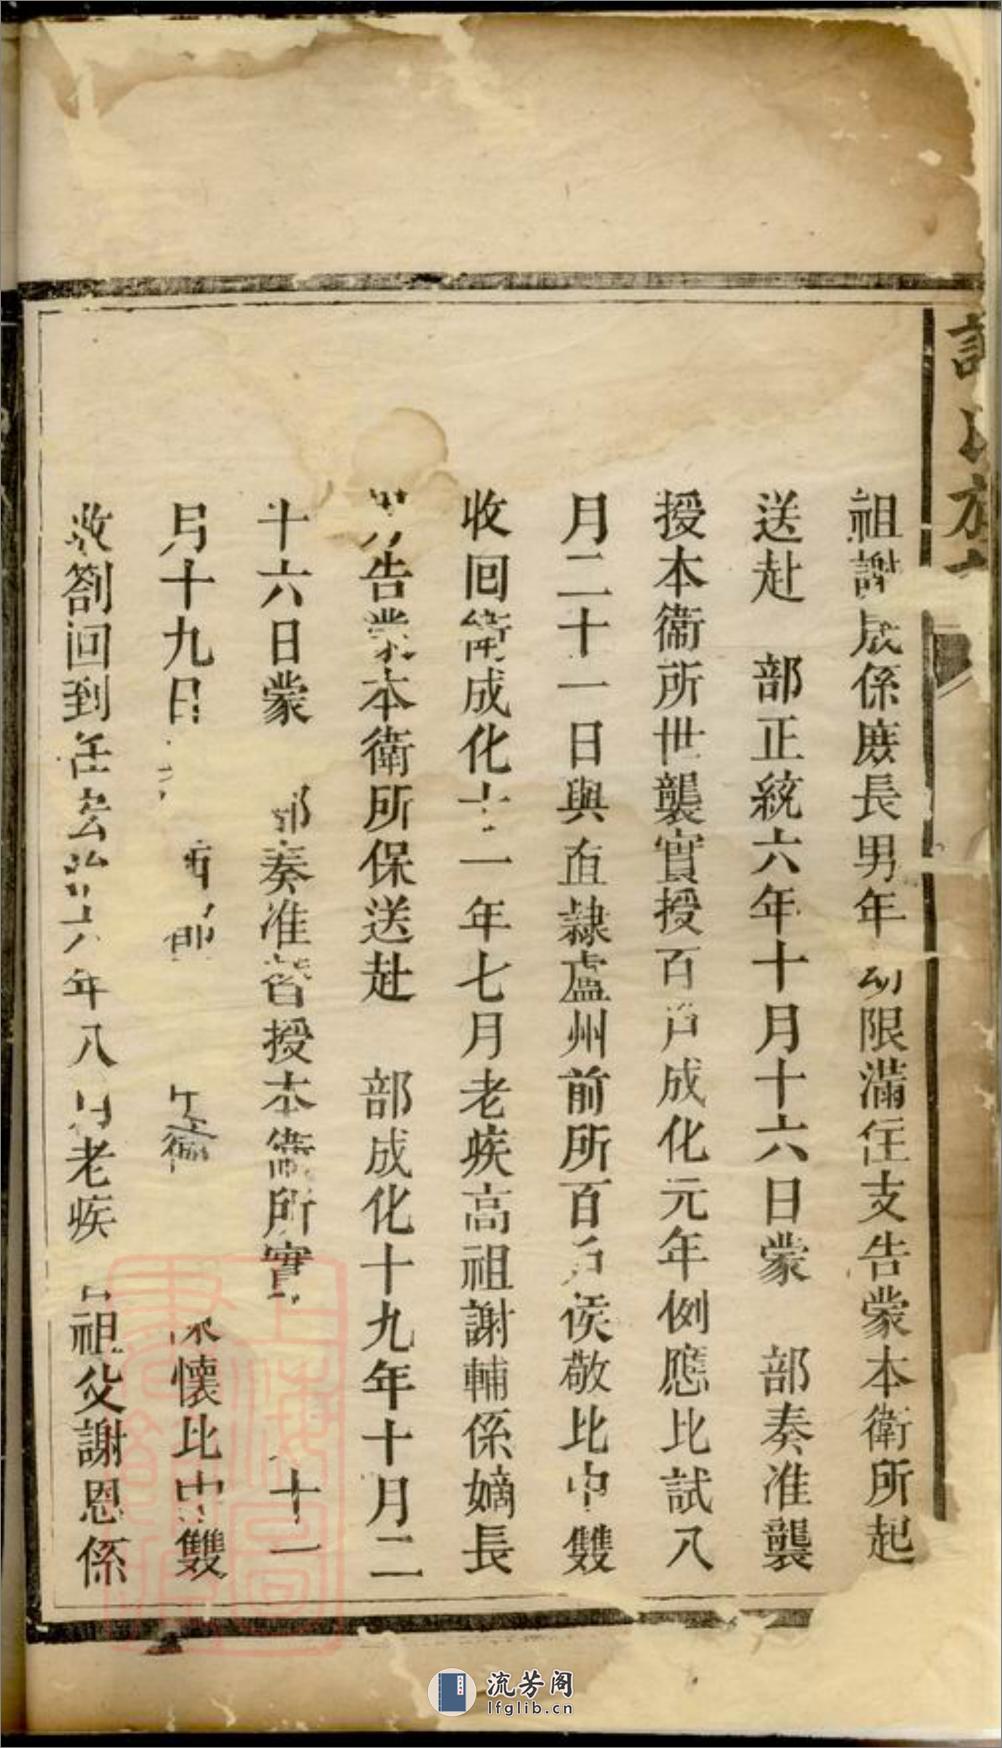 祖謝成係庶長男年幼限滿住支告蒙本衛所起
送赴 部正統六年十月十六日蒙 部奏准襲
授本衛所世襲實授百戶成化元年例應比試八
月二十一日與直隸盧州前所百戶侯敬比中雙
收回衛成化十一年七月老疾高祖謝輔係嫡長
男告蒙本衛所保送赴 部成化十九年十月二
十六日蒙 部奏准替授本衛所實 十一
月十九日 衛 懷比中雙
收劄回到任 年八月老疾 祖父謝恩係
謝氏族
上海圖書館藏
流芳阁
lfglib.cn